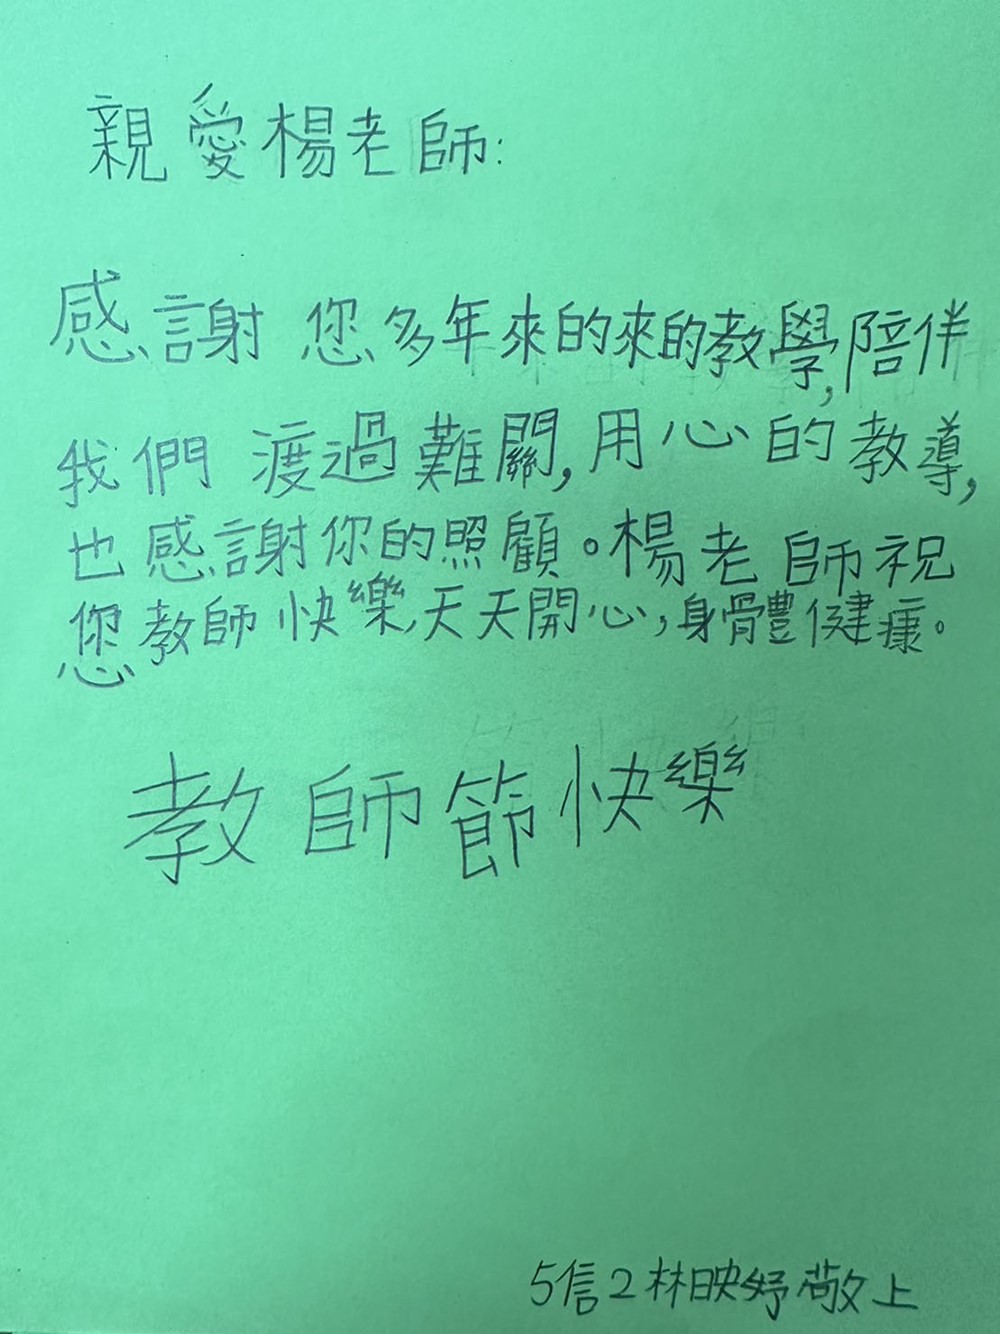 親愛楊老師:
感謝您多年來的來的教學,陪伴
我們渡過難關,用心的教導,
也感謝你的照顧。楊老師祝
您教師快樂,天天開心,身體健康。
教師節快樂
5信2林映妤敬上